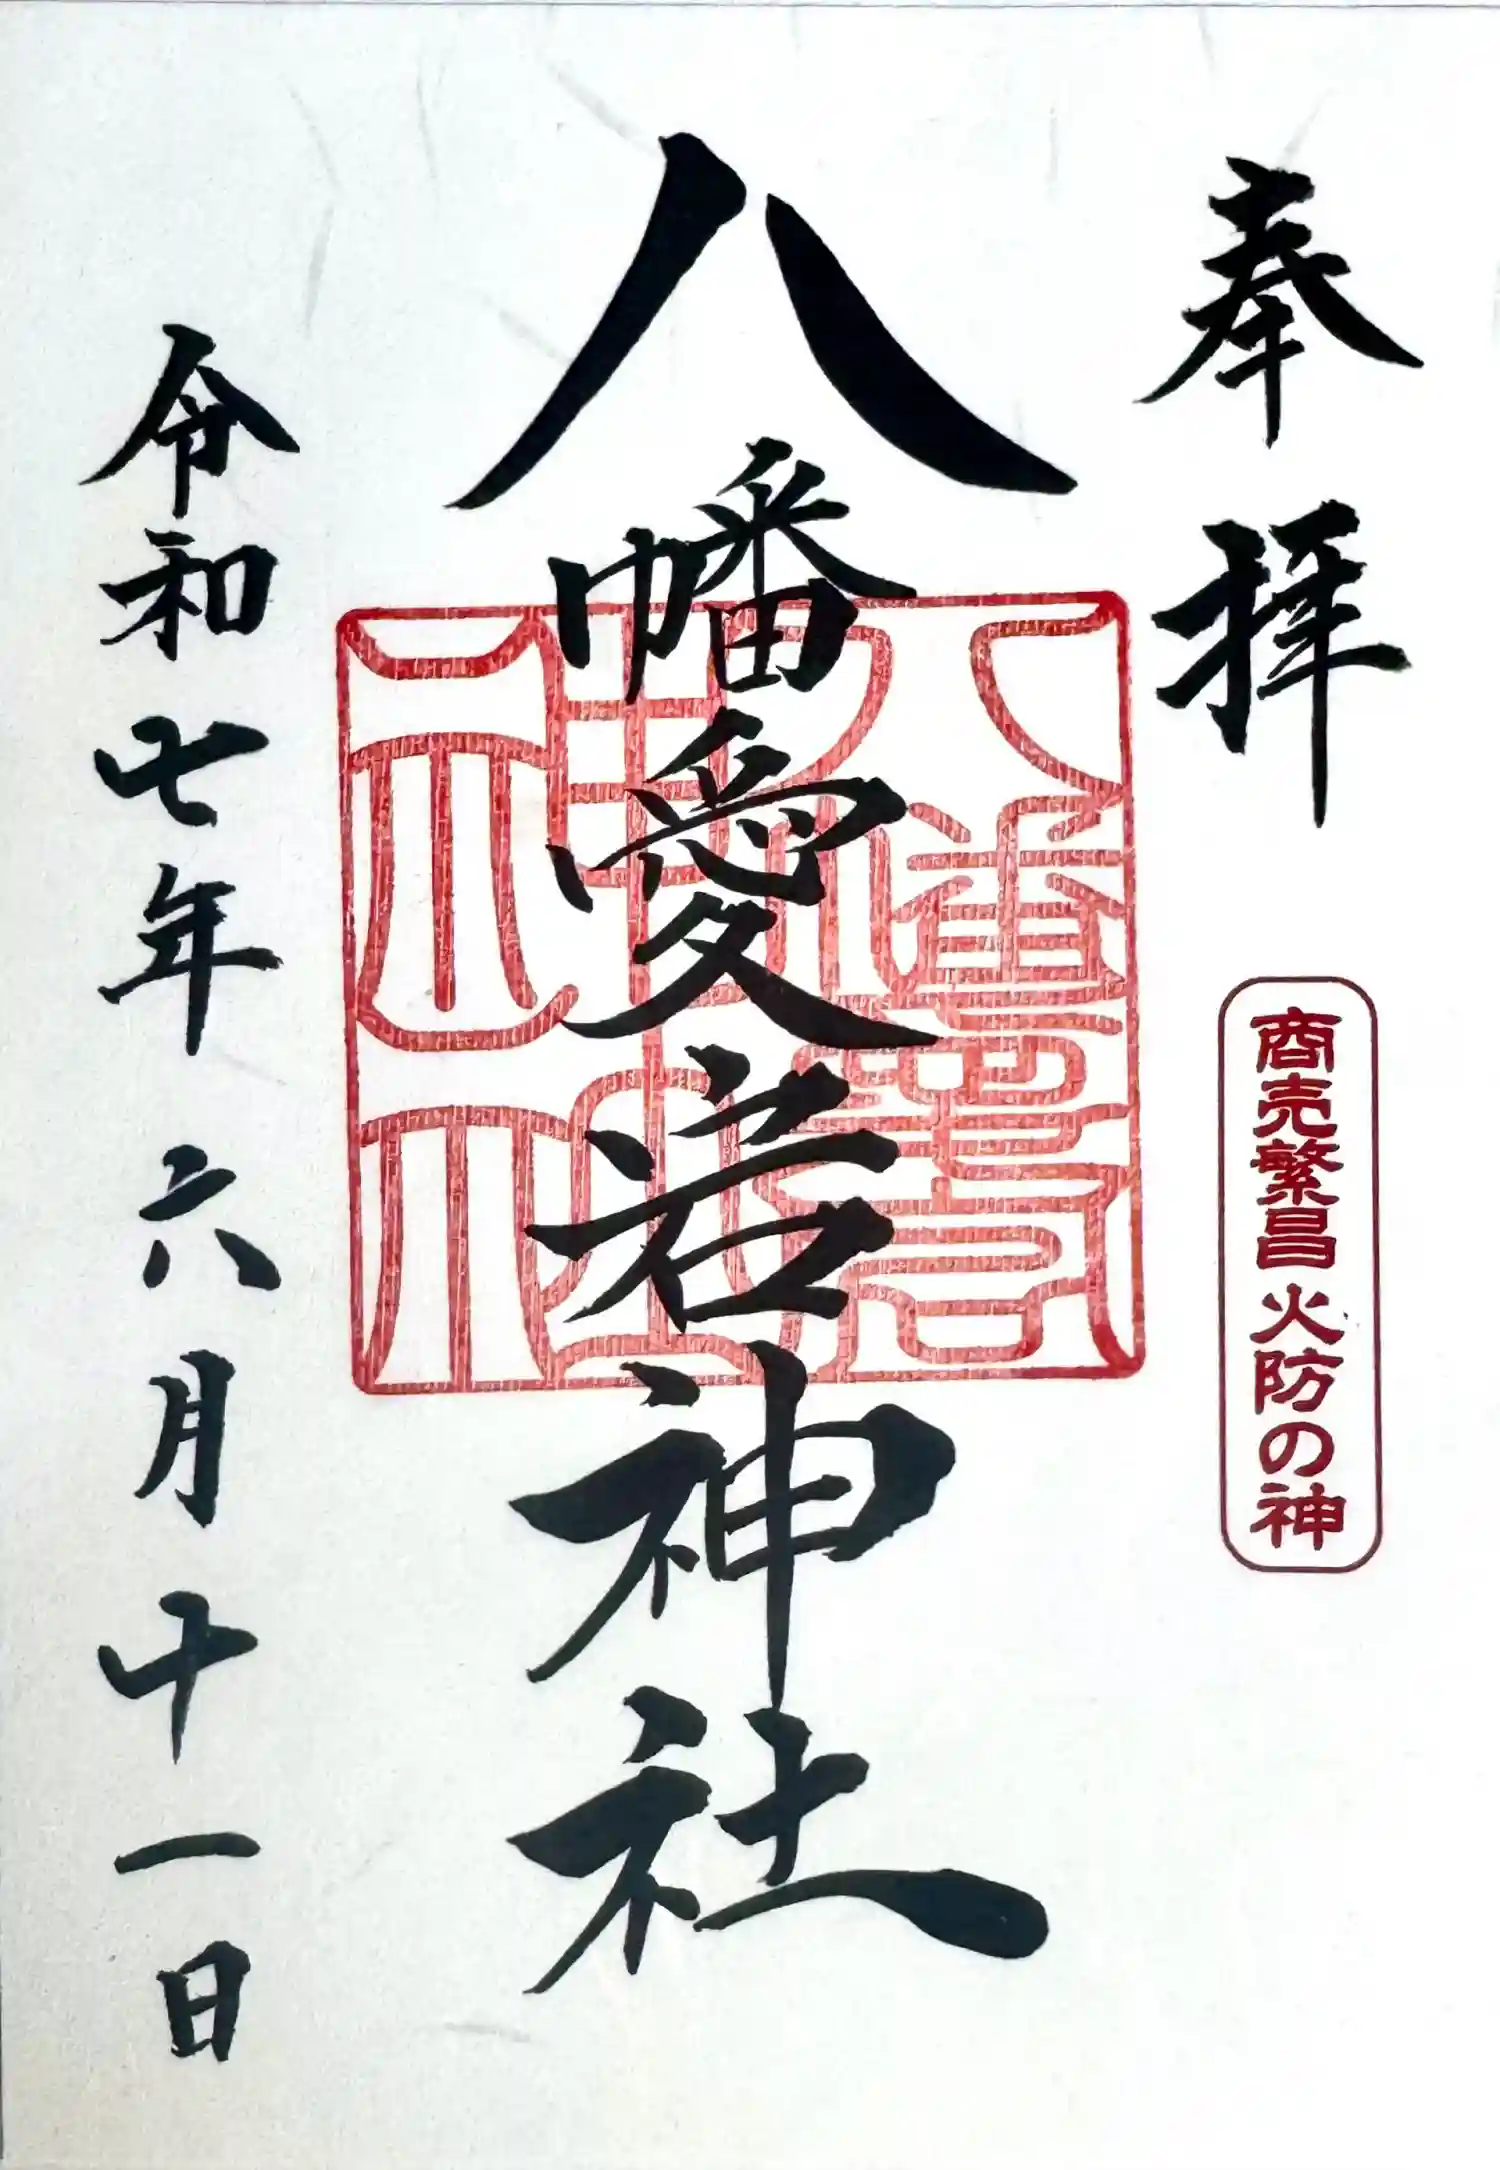 奉拝
商売繁昌火防の神
八幡愛宕神社
令和七年六月十一日